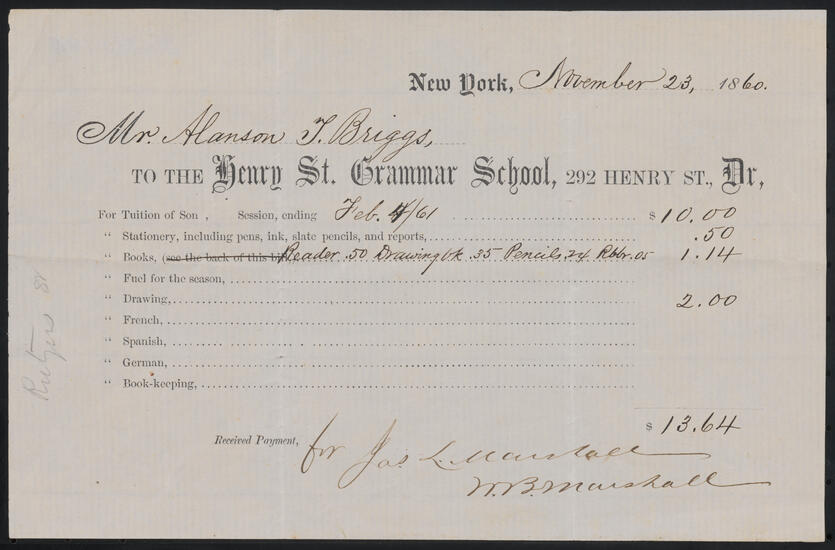 New York, November 23, 1860.
Mr. Alanson T. Briggs,
TO THE Henry St. Grammar School, 292 HENRY ST., Dr,
For Tuition of Son , Session, ending Feb. 4/61 $ 10.00
" Stationery, including pens, ink, slate pencils, and reports, .50
" Books, (see the back of this bill Reader .50 Drawing bk 35 Pencils .24 Rbbr. 05 1.14
" Fuel for the season,
" Drawing, 2.00
" French,
" Spanish,
" German,
" Book-keeping,
$ 13.64
Received Payment, for Jas. L. Marshall
W. B. Marshall
Rutgers St